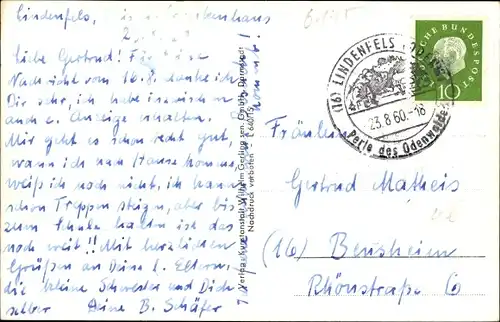 Lindenfels, Krankenhaus
Liebe Gertrud! Für Deine
Nachricht vom 16.8. danke ich
Dir sehr, ich habe inzwischen
auch e. Anzeige erhalten.
Mir geht es schon recht gut,
wann ich nach Hause komme,
weiß ich noch nicht, ich kann
schon Treppen steigen, aber bis
zum Schule halten ist das
noch weit!! Mit herzlichen
Grüßen an Deine l. Eltern,
die kleine Schwester und Dich
selber Deine B. Schäfer
Verlag: Kunstanstalt Wilhelm Gerling
Nachdruck verboten
(16) LINDENFELS
23.8.60-16
Perle des Odenwaldes
DEUTSCHE BUNDESPOST
10
Fräulein
Gertrud Matheis
(16) Bensheim
Rhönstraße 6